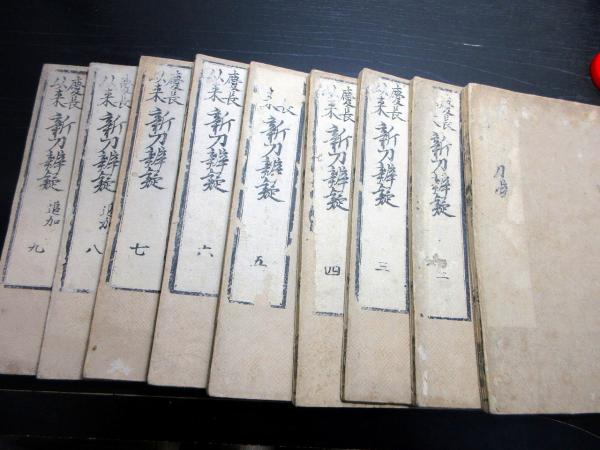 刀
慶長 新刀辨疑 二
慶長以来 新刀辨疑 三
慶長以来 新刀辨疑 四
新刀辨疑 五
慶長以来 新刀辨疑 六
慶長以来 新刀辨疑 七
慶長以来 新刀辨疑 追加 八
慶長以来 新刀辨疑 追加 九